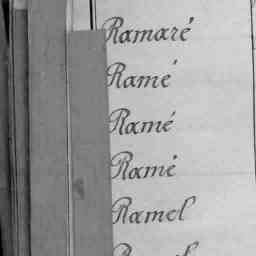 Ramaré
Ramé
Ramé
Ramé
Ramel